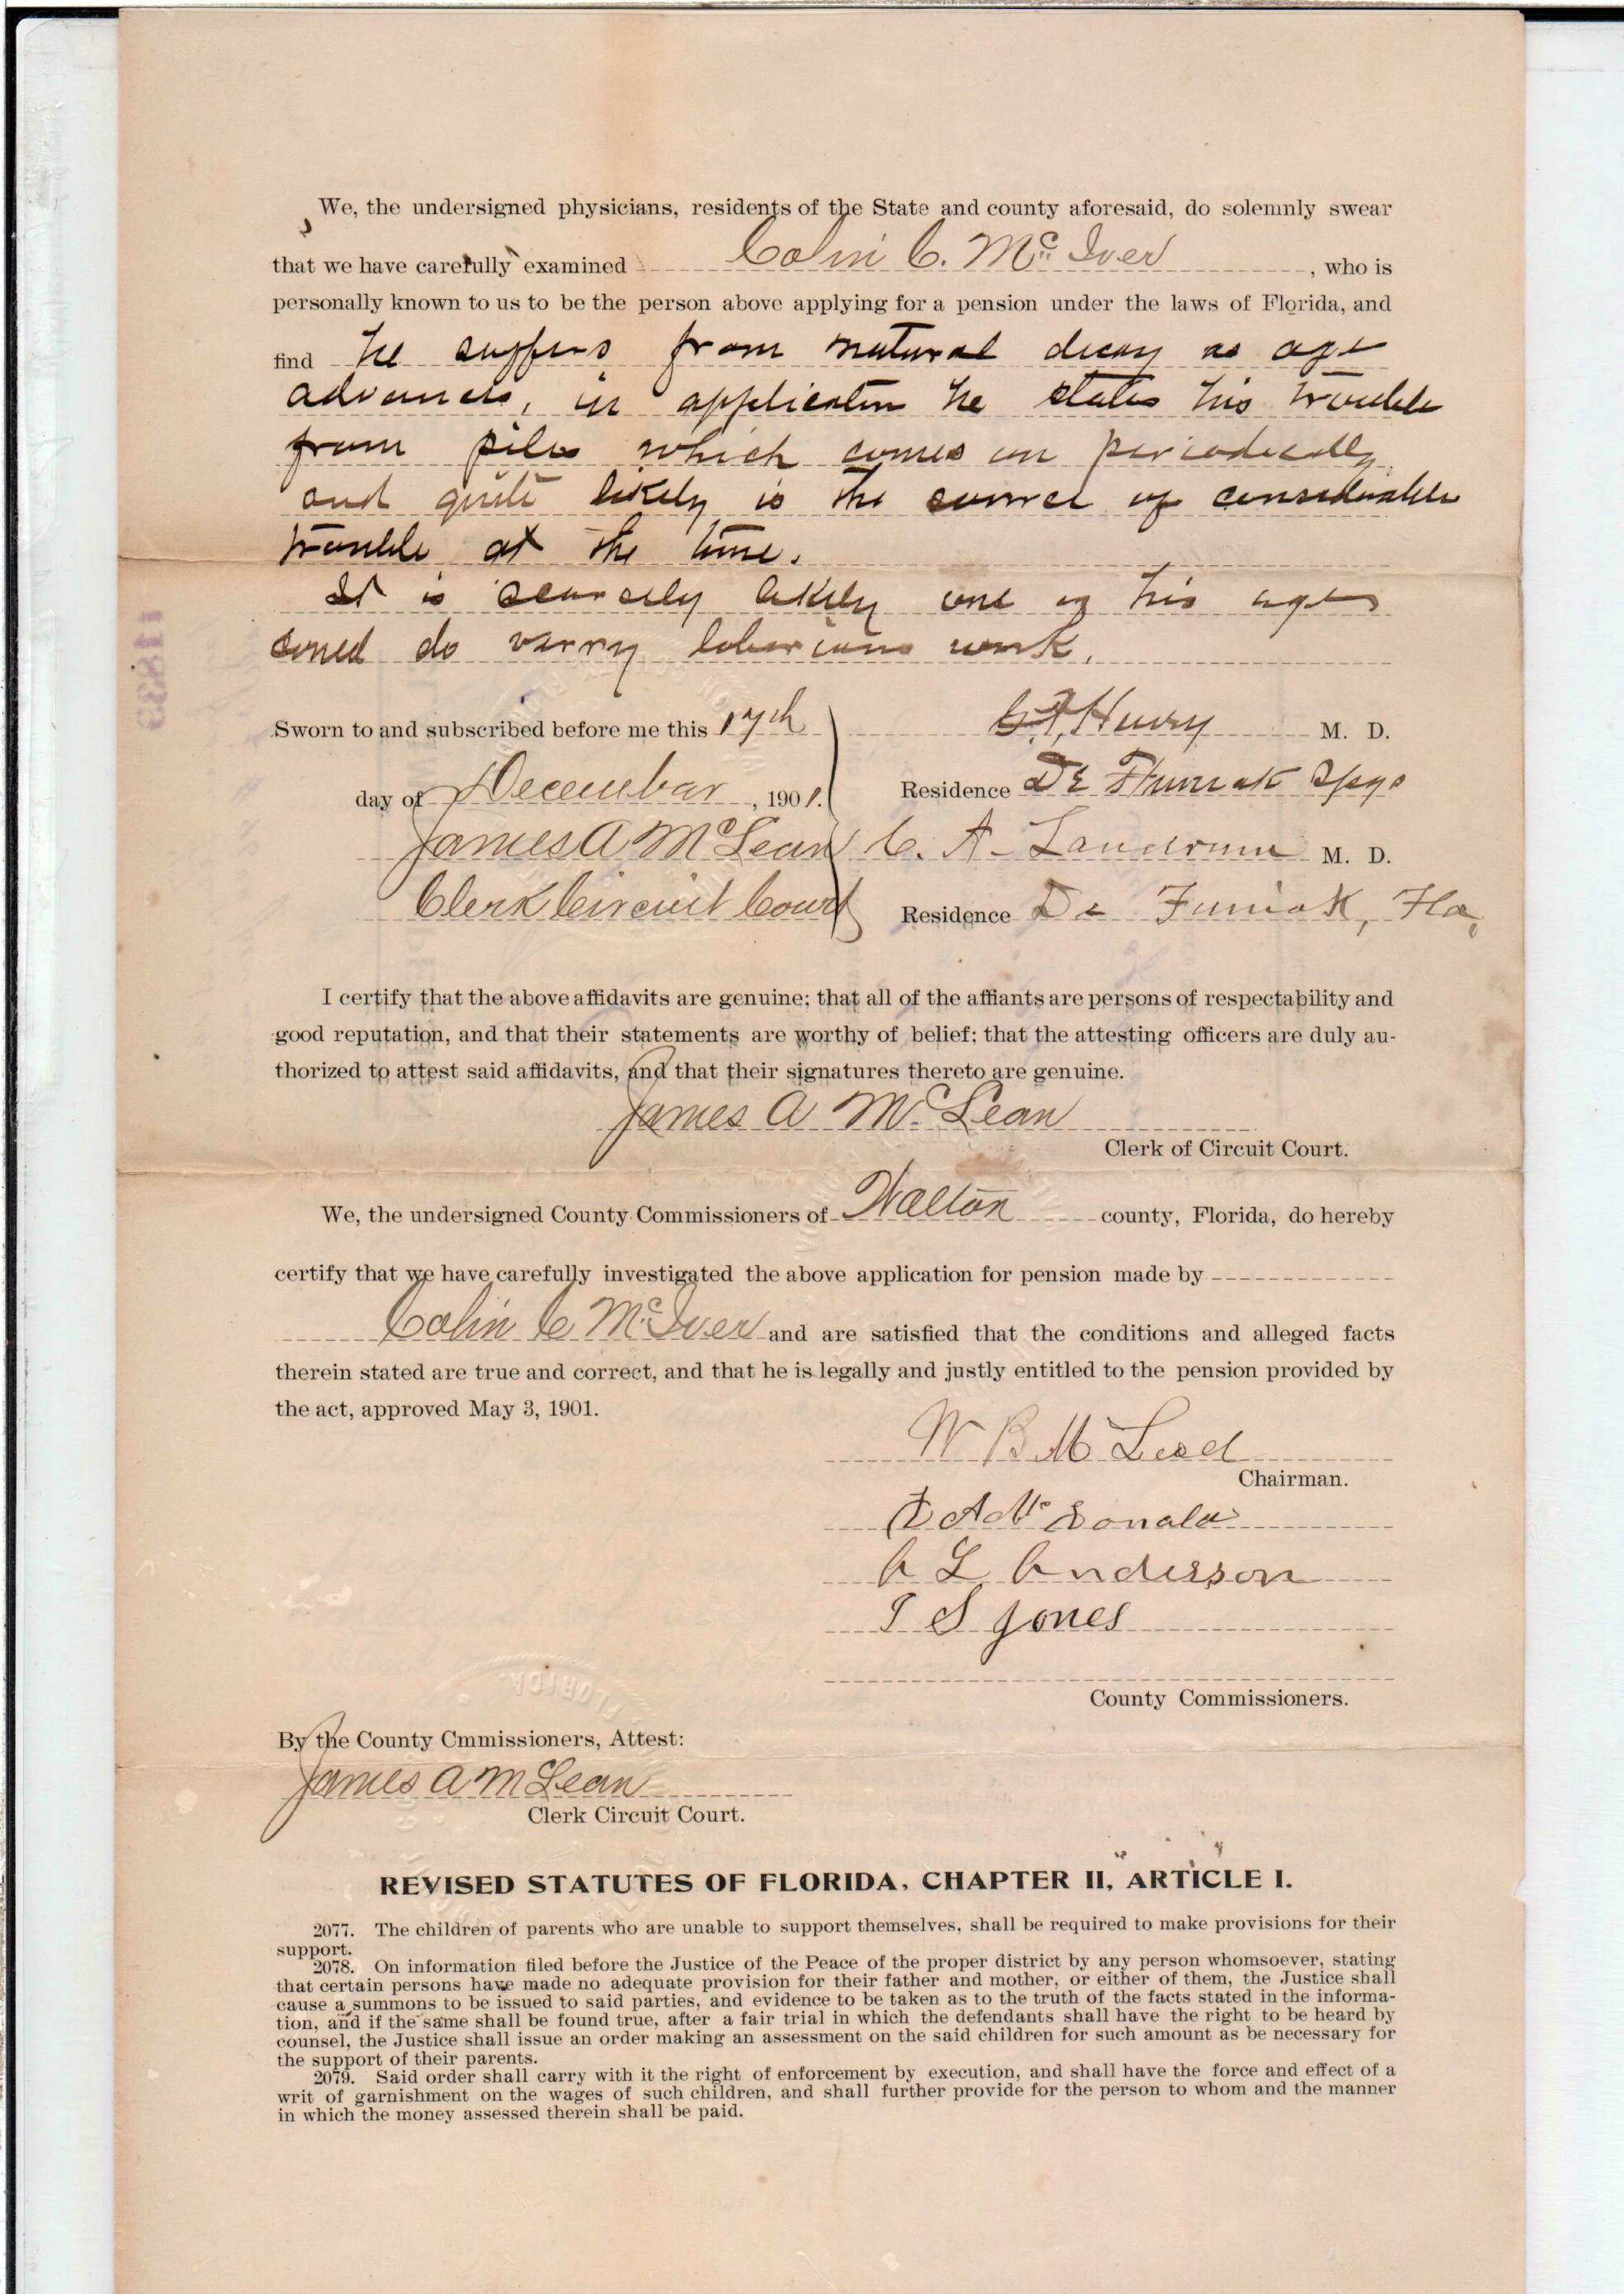 We, the undersigned physicians, residents of the State and county aforesaid, do solemnly swear
that we have carefully examined Colin C. McIver, who is
personally known to us to be the person above applying for a pension under the laws of Florida, and
find he suffers from natural decay as age
advances, in application he states his trouble
from piles which comes on periodically
and quite likely is the source of considerable
trouble at the time.
It is scarcely likely one of his age
could do verry laborious work.
Sworn to and subscribed before me this 17th
day of December, 1901.
James A McLean
Clerk Circuit Court
M. D.
Residence De Funiak Spgs
C. A. Landrum M. D.
Residence De Funiak, Fla,
I certify that the above affidavits are genuine; that all of the affiants are persons of respectability and
good reputation, and that their statements are worthy of belief; that the attesting officers are duly au-
thorized to attest said affidavits, and that their signatures thereto are genuine.
James A McLean
Clerk of Circuit Court.
We, the undersigned County Commissioners of Walton county, Florida, do hereby
certify that we have carefully investigated the above application for pension made by
Colin C McIver and are satisfied that the conditions and alleged facts
therein stated are true and correct, and that he is legally and justly entitled to the pension provided by
the act, approved May 3, 1901.
W B McLeod
Chairman.
D A McDonald
A L Anderson
T S Jones
County Commissioners.
By the County Cmmissioners, Attest:
James A McLean
Clerk Circuit Court.
REVISED STATUTES OF FLORIDA, CHAPTER II, ARTICLE I.
2077. The children of parents who are unable to support themselves, shall be required to make provisions for their
support.
2078. On information filed before the Justice of the Peace of the proper district by any person whomsoever, stating
that certain persons have made no adequate provision for their father and mother, or either of them, the Justice shall
cause a summons to be issued to said parties, and evidence to be taken as to the truth of the facts stated in the informa-
tion, and if the same shall be found true, after a fair trial in which the defendants shall have the right to be heard by
counsel, the Justice shall issue an order making an assessment on the said children for such amount as be necessary for
the support of their parents.
2079. Said order shall carry with it the right of enforcement by execution, and shall have the force and effect of a
writ of garnishment on the wages of such children, and shall further provide for the person to whom and the manner
in which the money assessed therein shall be paid.